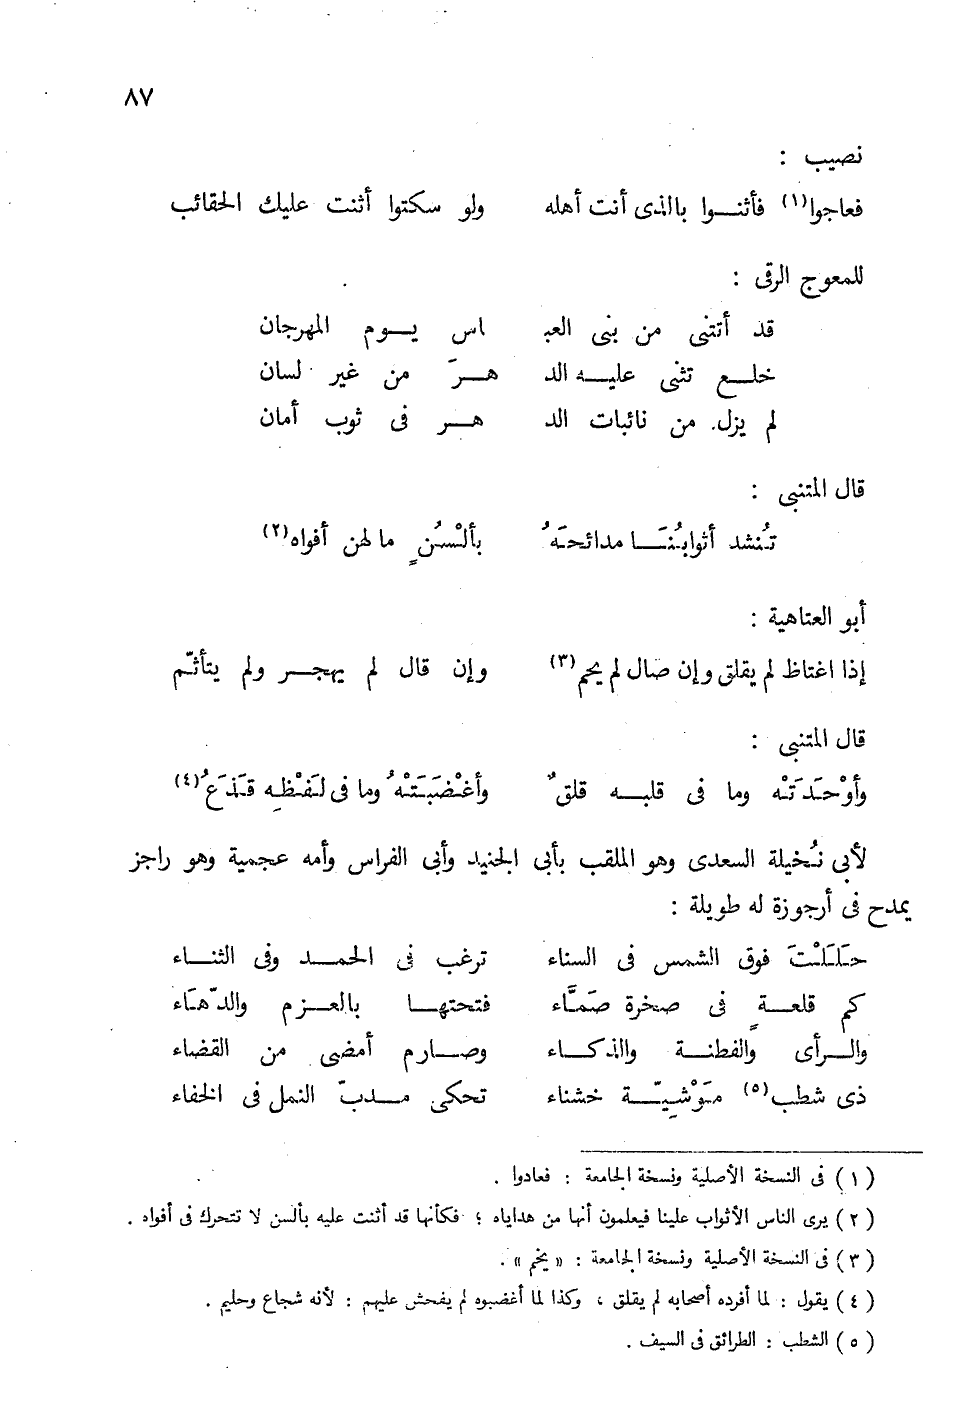 ٨٧
نصيب :
فعاجوا(١) فأثنــوا بالذى أنت أهله ولو سكتوا أثنت عليك الحقائب
للمعوج الرقى :
قد أتتنى من بنى العبـ ـاس يــوم المهرجان
خلــع تثنى عليــه الد هــرَ من غير لسان
لم يزل من نائبات الد هــر فى ثوب أمان
قال المتنبى :
تُنشد أثوابُنَــا مدائحَهُ بألْسُنٍ ما لهن أفواه(٢)
أبو العتاهية :
إذا اغتاظ لم يقلق وإن صال لم يحم(٣) وإن قال لم يهجــر ولم يتأثّم
قال المتنبى :
وأوْحَدَتْه وما فى قلبــه قلقٌ وأغْضَبَتْهُ وما فى لَفْظِه قَذَعُ(٤)
لأبى نُخيلة السعدى وهو الملقب بأبى الجنيد وأبى الفراس وأمه عجمية وهو راجز
يمدح فى أرجوزة له طويلة :
حَلَلْتَ فوق الشمس فى السناء ترغب فى الحمــد وفى الثنــاء
كم قلعــةٍ فى صخرة صَمَّاء فتحتهــا بالعــزم والدّهَاء
والــرأى والفطنــة والذكــاء وصــارم أمضى من القضاء
ذى شطب(٥) مَوْشِيّــة خشناء تحكى مــدبّ النمل فى الخفاء
(١) فى النسخة الأصلية ونسخة الجامعة : فعادوا .
(٢) يرى الناس الأثواب علينا فيعلمون أنها من هداياه ؛ فكأنها قد أثنت عليه بألسن لا تتحرك فى أفواه .
(٣) فى النسخة الأصلية ونسخة الجامعة : « يخم » .
(٤) يقول : لما أفرده أصحابه لم يقلق ، وكذا لما أغضبوه لم يفحش عليهم : لأنه شجاع وحليم .
(٥) الشطب : الطرائق فى السيف .